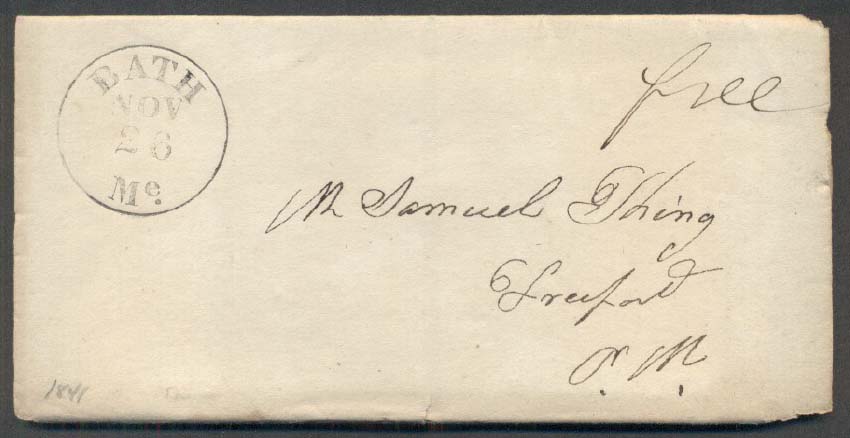 BATH
NOV
26
Me.
free
Mr Samuel Thing
Freeport
P. M.
1841